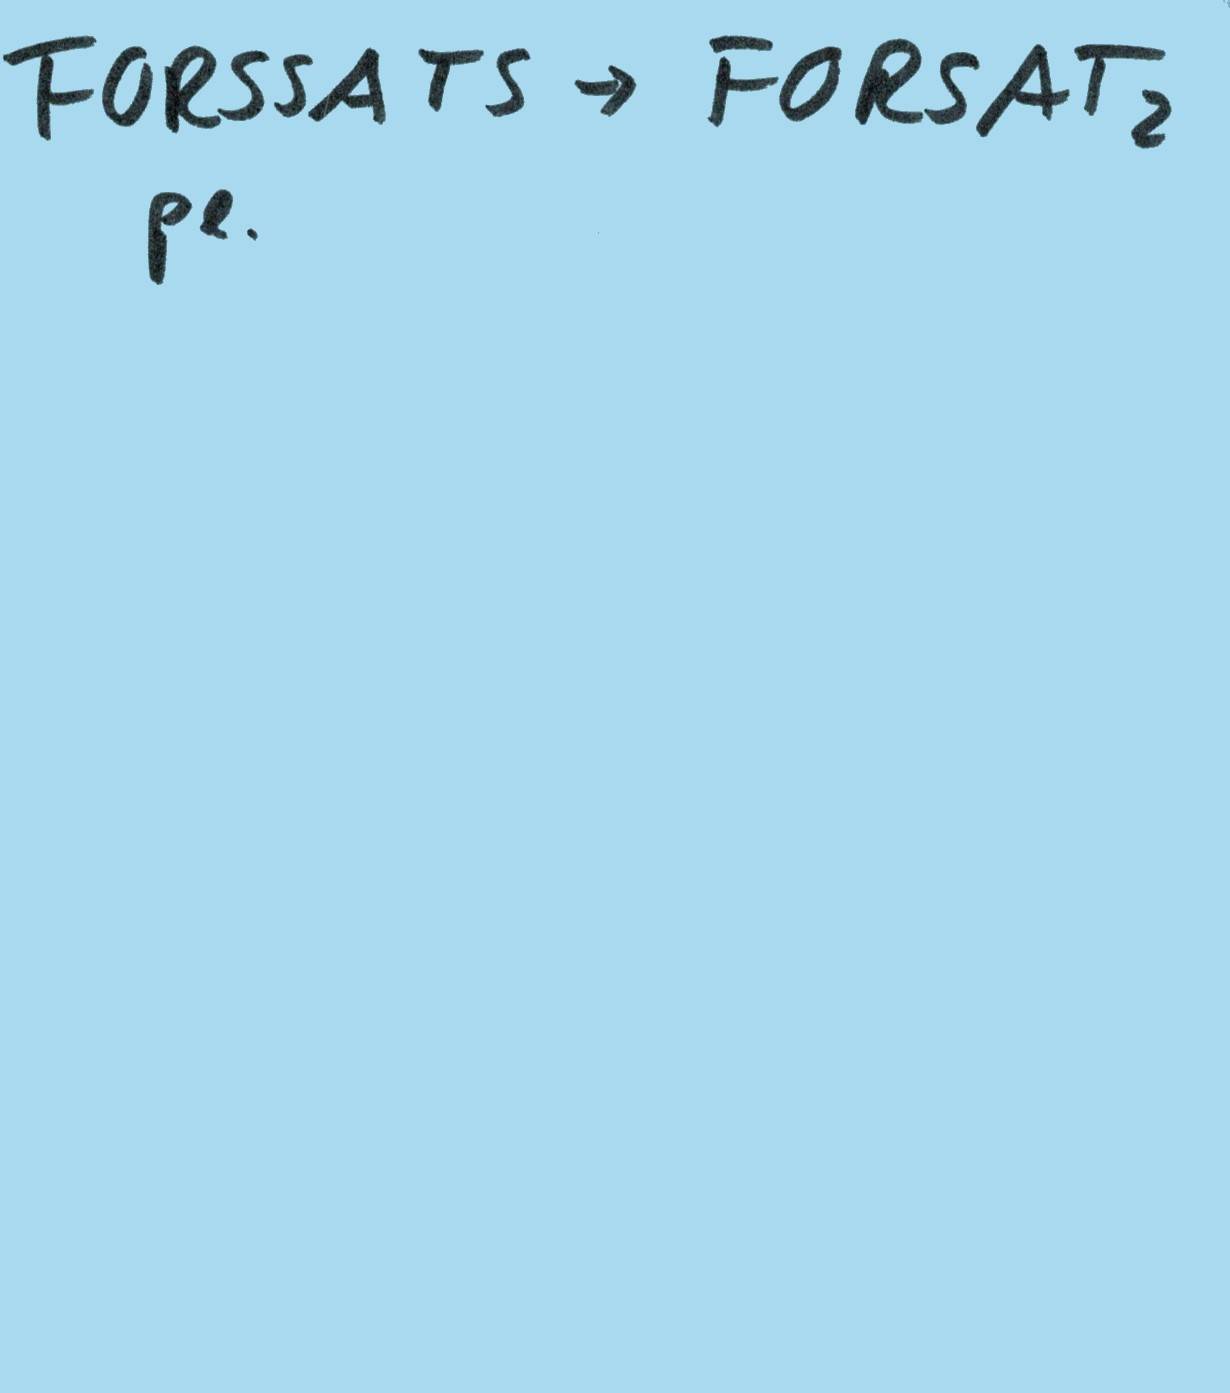 FORSSATS → FORSAT₂
pl.